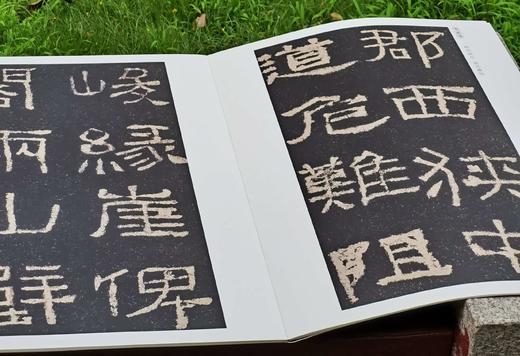 郡西狹中
道危難阻
峻緣崖俾
閣兩山壁